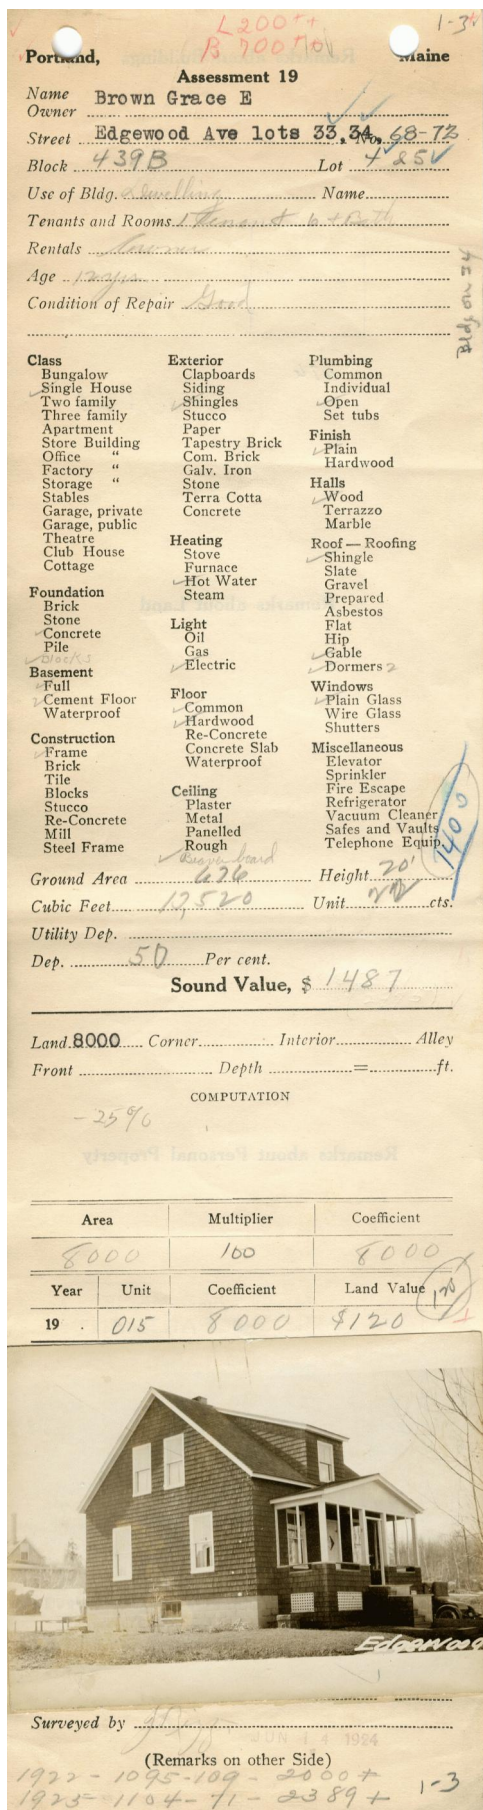 L 200++
B 700+
1-3
Portland, Maine
Assessment 19
Name
Owner Brown Grace E
Street Edgewood Ave lots 33,34, No. 68-72
Block 439B Lot 4 & 5
Use of Bldg. Dwelling Name
Tenants and Rooms 1 Tenant 6 + Bath
Rentals Owner
Age 12 yrs
Condition of Repair Good
Bldg on 34
Class
Bungalow
Single House
Two family
Three family
Apartment
Store Building
Office "
Factory "
Storage "
Stables
Garage, private
Garage, public
Theatre
Club House
Cottage
Foundation
Brick
Stone
Concrete
Pile
blocks
Basement
Full
Cement Floor
Waterproof
Construction
Frame
Brick
Tile
Blocks
Stucco
Re-Concrete
Mill
Steel Frame
Exterior
Clapboards
Siding
Shingles
Stucco
Paper
Tapestry Brick
Com. Brick
Galv. Iron
Stone
Terra Cotta
Concrete
Heating
Stove
Furnace
Hot Water
Steam
Light
Oil
Gas
Electric
Floor
Common
Hardwood
Re-Concrete
Concrete Slab
Waterproof
Ceiling
Plaster
Metal
Panelled
Rough
Beaver board
Plumbing
Common
Individual
Open
Set tubs
Finish
Plain
Hardwood
Halls
Wood
Terrazzo
Marble
Roof — Roofing
Shingle
Slate
Gravel
Prepared
Asbestos
Flat
Hip
Gable
Dormers 2
Windows
Plain Glass
Wire Glass
Shutters
Miscellaneous
Elevator
Sprinkler
Fire Escape
Refrigerator
Vacuum Cleaner
Safes and Vaults
Telephone Equip.
1400
Ground Area 626 Height 20'
Cubic Feet 12,520 Unit 22 cts.
Utility Dep.
Dep. 50 Per cent.
Sound Value, $ 1487
Land 8000 Corner Interior Alley
Front Depth = ft.
COMPUTATION
-25%
Remarks about Personal Property
Area Multiplier Coefficient
8000 100 8000
Year Unit Coefficient Land Value 120
19 . 015 8000 $120
Edgewood
Surveyed by
JUN 14 1924
(Remarks on other Side)
1922 - 1095-109 - 2000 +
1925 1104 - 71 - 2389 + 1-3